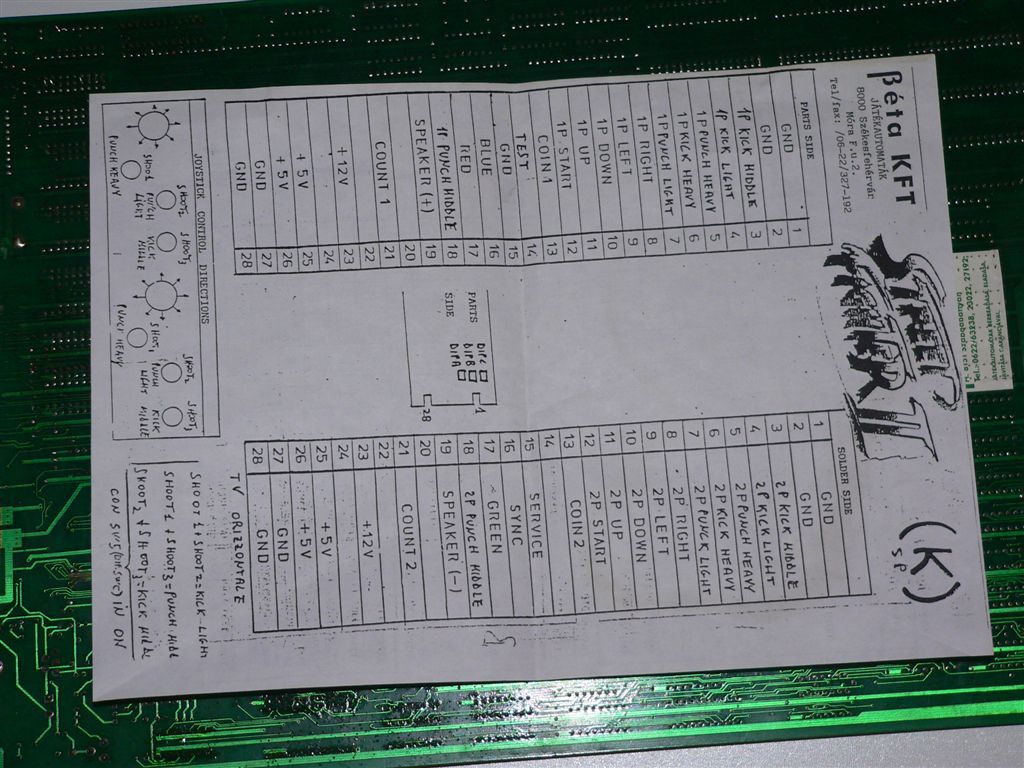 βéta KFT
JÁTÉKAUTOMATÁK
8000 Székesfehérvár
Móra F.u.2.
Tel/fax: /06-22/327-192
STREET
FIGHTER II
(K)
SP
PARTS SIDE
GND 1
GND 2
1P KICK MIDDLE 3
1P KICK LIGHT 4
1P PUNCH HEAVY 5
1P KICK HEAVY 6
1P PUNCH LIGHT 7
1P RIGHT 8
1P LEFT 9
1P DOWN 10
1P UP 11
1P START 12
COIN1 13
TEST 14
GND 15
BLUE 16
RED 17
1P PUNCH MIDDLE 18
SPEAKER (+) 19
20
COUNT 1 21
22
+12V 23
24
+5V 25
+5V 26
GND 27
GND 28
PARTS
SIDE
DIPC
DIPB
DIPA
1
28
SOLDER SIDE
1 GND
2 GND
3 2P KICK MIDDLE
4 2P KICK LIGHT
5 2P PUNCH HEAVY
6 2P KICK HEAVY
7 2P PUNCK LIGHT
8 2P RIGHT
9 2P LEFT
10 2P DOWN
11 2P UP
12 2P START
13 COIN2
14
15 SERVICE
16 SYNC
17 GREEN
18 2P PUNCH MIDDLE
19 SPEAKER (-)
20
21 COUNT 2
22
23 +12V
24
25 +5V
26 +5V
27 GND
28 GND
TV ORIZZONTALE
JOYSTICK CONTROL DIRECTIONS
SHOOT2 SHOOT3
SHOOT1 PUNCH LIGHT KICK MIDDLE
PUNCH HEAVY
SHOOT2 SHOOT3
SHOOT1 PUNCH LIGHT KICK MIDDLE
PUNCH HEAVY
SHOOT1+SHOOT2=KICK LIGHT
SHOOT1+SHOOT3=PUNCH MIDL
SHOOT2+SHOOT3=KICK MIDL
CON SW5(DIPSWC) IN ON